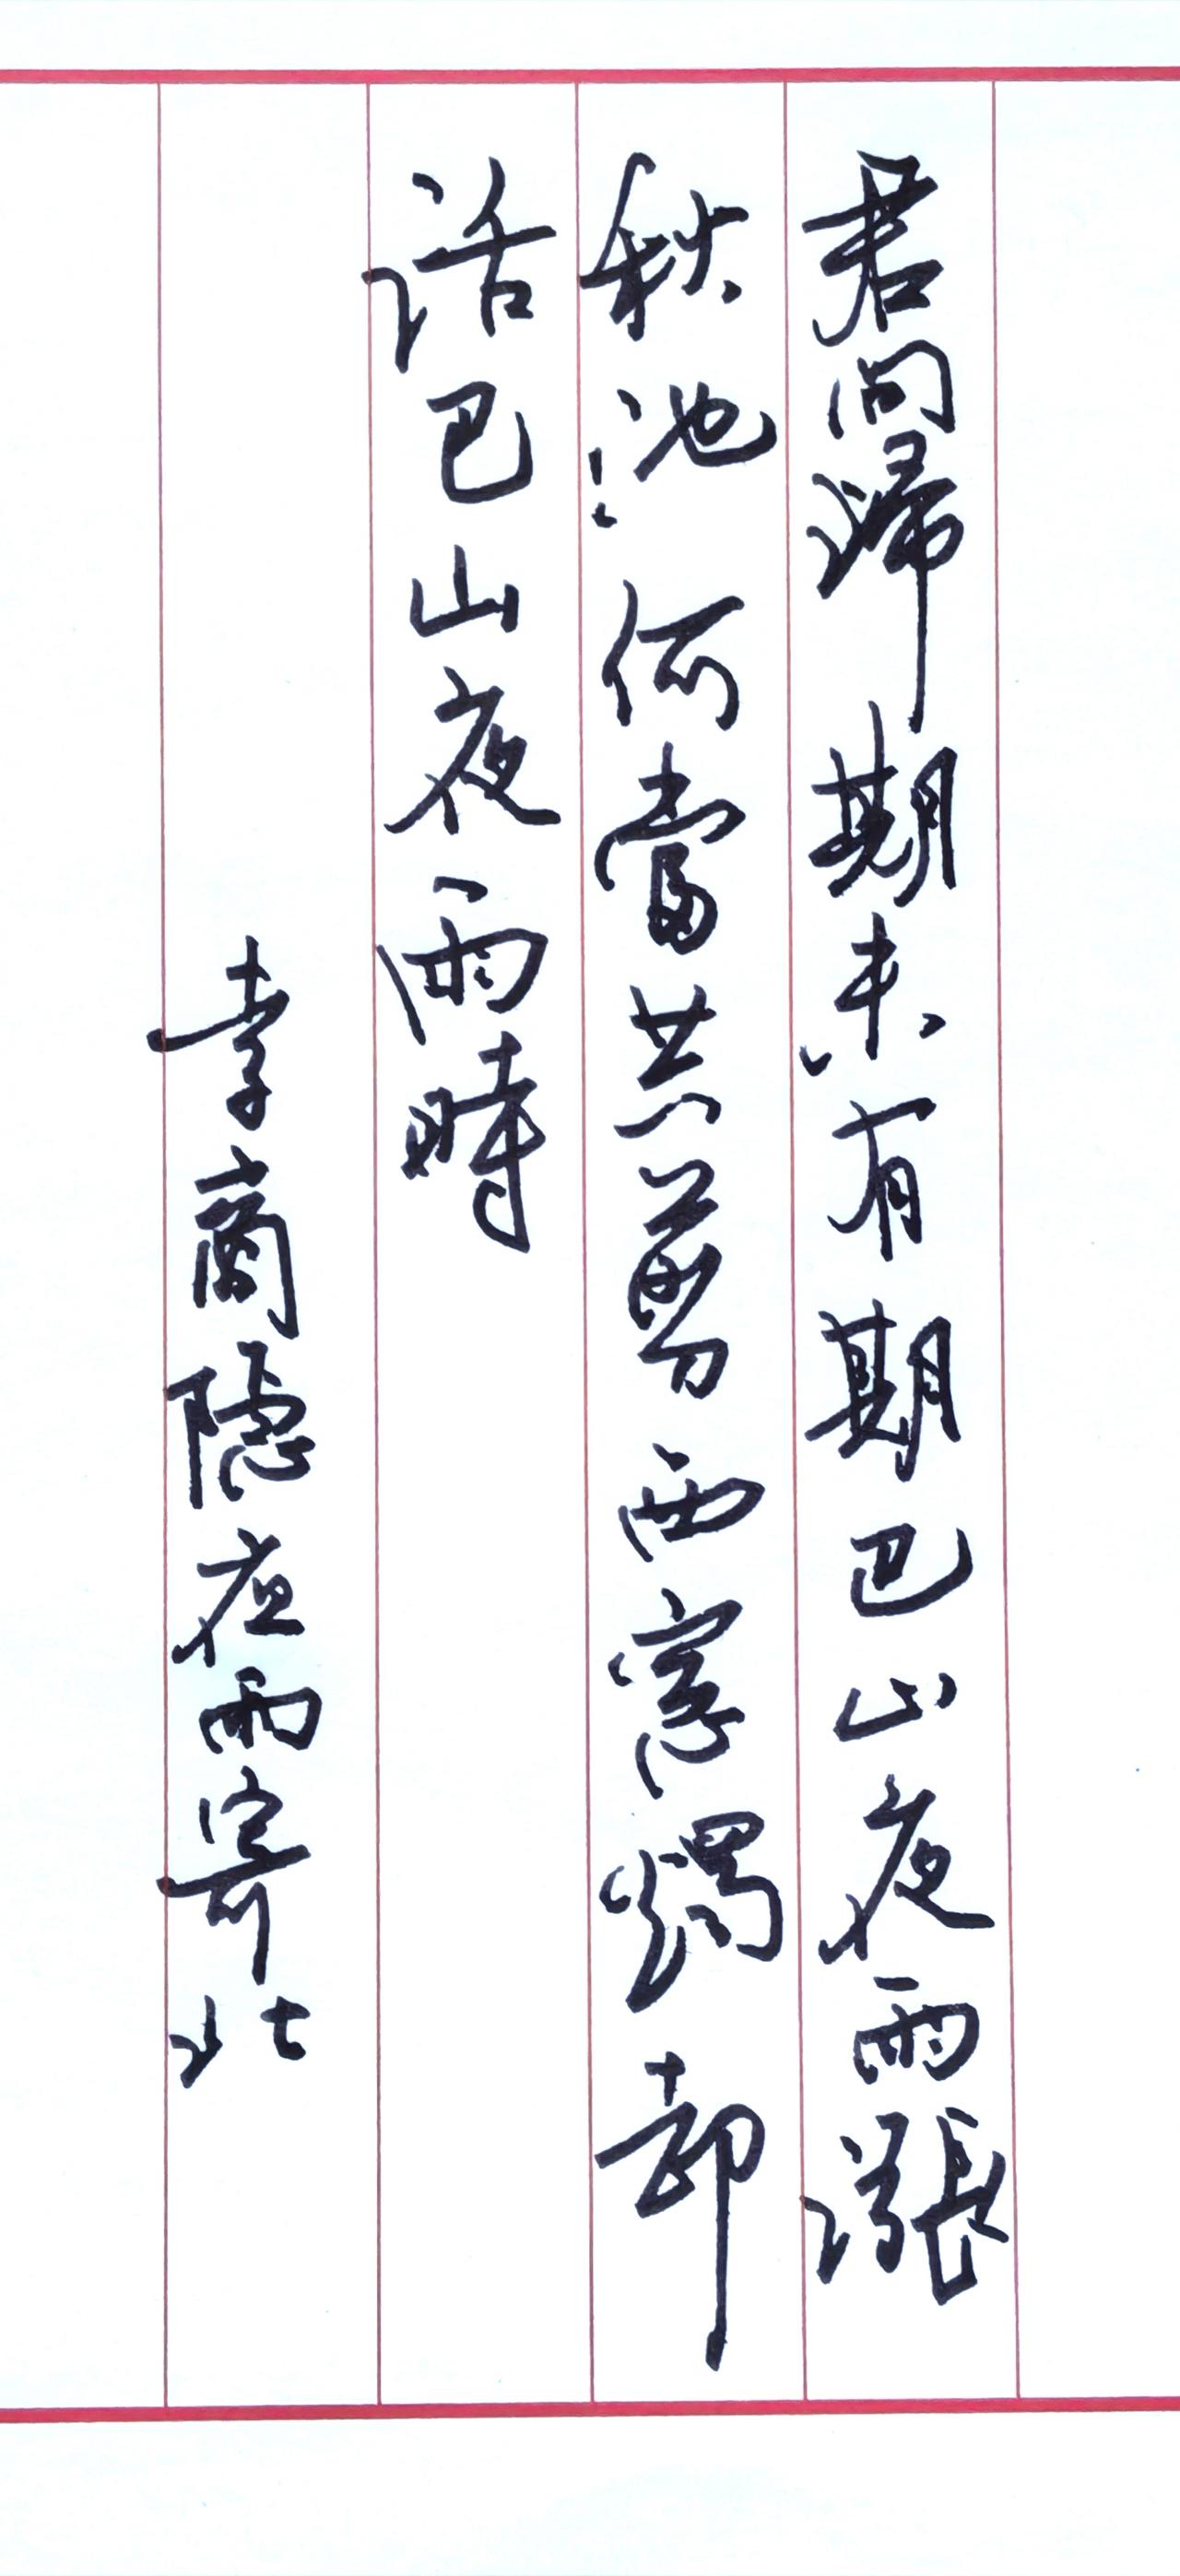 君問歸期未有期巴山夜雨漲
秋池何當共剪西窗燭却
話巴山夜雨時
李商隱夜雨寄北